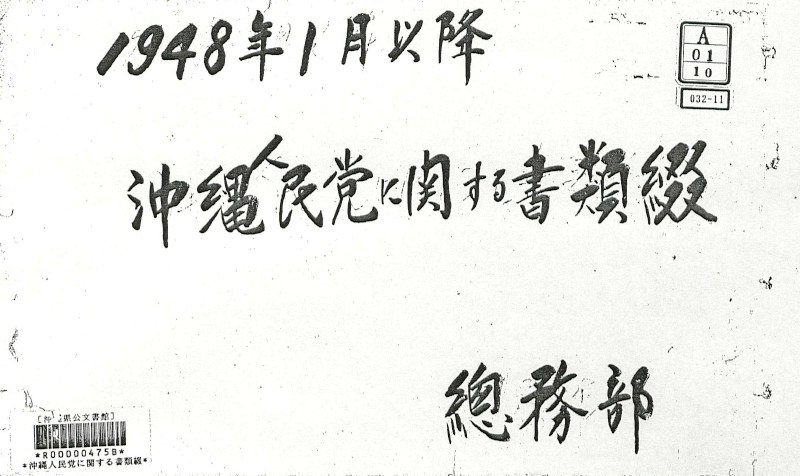 1948年1月以降
A
01
10
032-11
沖縄人民党に関する書類綴
總務部
県公文書館]
*R00000475B*
*沖縄人民党に関する書類綴*